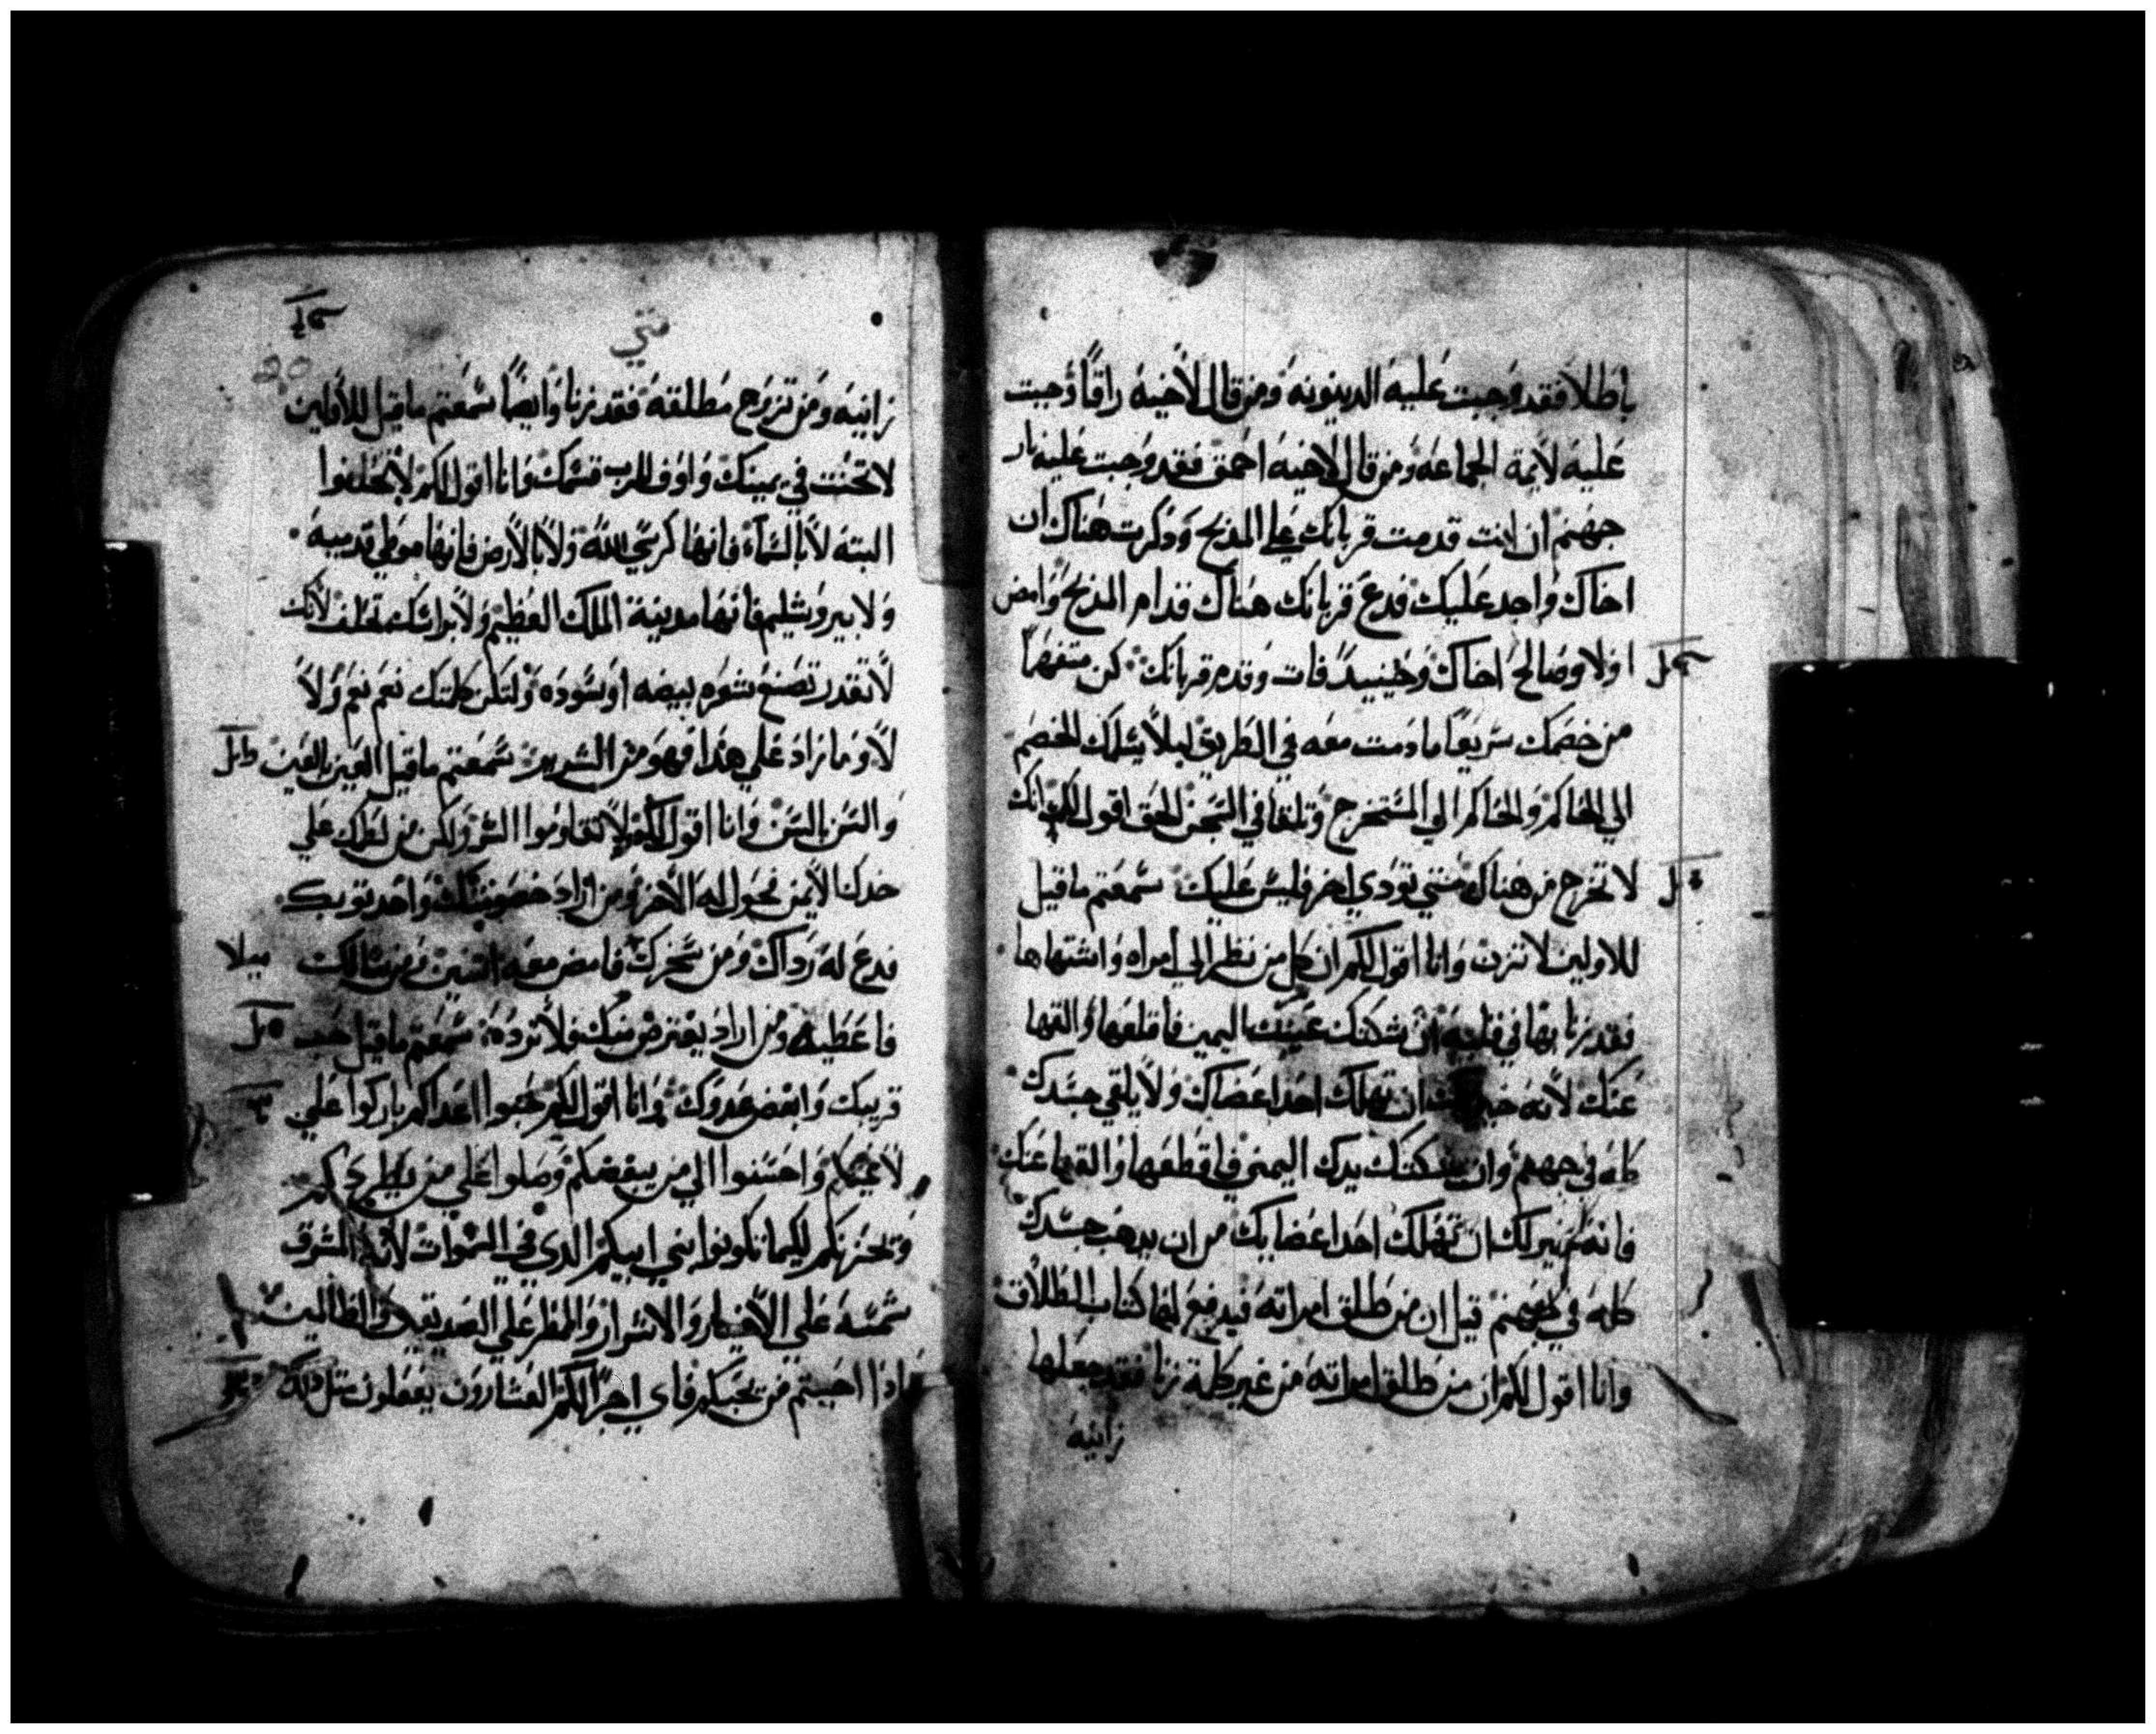 باطلا فقد وجبت عليه الدينونه ومن قال لاخيه راقا وجبت
عليه لايمة الجماعه ومن قال لاخيه احمق فقد وجبت عليه نار
جهنم ان انت قدمت قربانك علي المدبح ودكرت هناك ان
اخاك واجد عليك فدع قربانك هناك قدام المدبح وامض
اولا وصالح اخاك وحينيد فات وقدم قربانك كن متفهما
من خصمك سريعا ما دمت معه في الطريق ليلا يسلمك الخصم
الي الحاكم والحاكم الي المستخرج وتلقا في السجن الحق اقول لك انك
لا تخرج من هناك حتي تودي اخر فليس عليك سمعتم ما قيل
للاولين لا تزن وانا اقول لكم ان كل من نظر الي امراه واشتهاها
فقد زنا بها في قلبه ان شكتك عينك اليمين فاقلعها والقها
عنك لانه خير لك ان تهلك احد اعضاك ولا يلقي جسدك
كله في جهنم وان شكتك يدك اليمني فاقطعها والقها عنك
فانه خير لك ان تهلك احد اعضايك من ان يدهب جسدك
كله في جهنم قيل ان من طلق امراته فيدفع لها كتاب الطلاق
وانا اقول لكم ان من طلق امراته من غير كلة زنا فقد جعلها
زانيه
متي
20
زانيه ومن تزوج مطلقه فقد زنا وايضا سمعتم ما قيل للاولين
لا تحنت في يمينك واوف للرب قسمك وانا اقول لكم لا تحلفوا
البته لا بالسماء فانها كرسي الله ولا بالارض فانها موطي قدميه
ولا بيروشليم فانها مدينة الملك العظيم ولا براسك تحلف لانك
لا تقدر تصنع شعره بيضه او سوده ولتكن كلمتك نعم نعم ولا
لا وما زاد علي هدا فهو من الشرير سمعتم ما قيل العين بالعين
والسن بالسن وانا اقول لكم لا تقاوموا الشر ولكن من لطمك علي
خدك الايمن فحول له الاخر ومن اراد خصومتك واخد توبك
فدع له رداك ومن سخرك فامض معه اتنين ومن سالك
ميلا
فاعطيه ومن اراد يقترض منك فلا ترده سمعتم ما قيل حب
قريبك وابغض عدوك وانا اقول لكم حبوا اعداكم باركوا علي
لاعنيكم واحسنوا الي من يبغضكم وصلوا علي من يطردكم
ويحزنكم لكيما تكونوا بني ابيكم الدي في السموات لانه المشرق
شمسه علي الاخيار والاشرار والمطر علي الصديقين والظالمين
فادا احببتم من يحبكم فاي اجر لكم العشارون يفعلون متل دلك